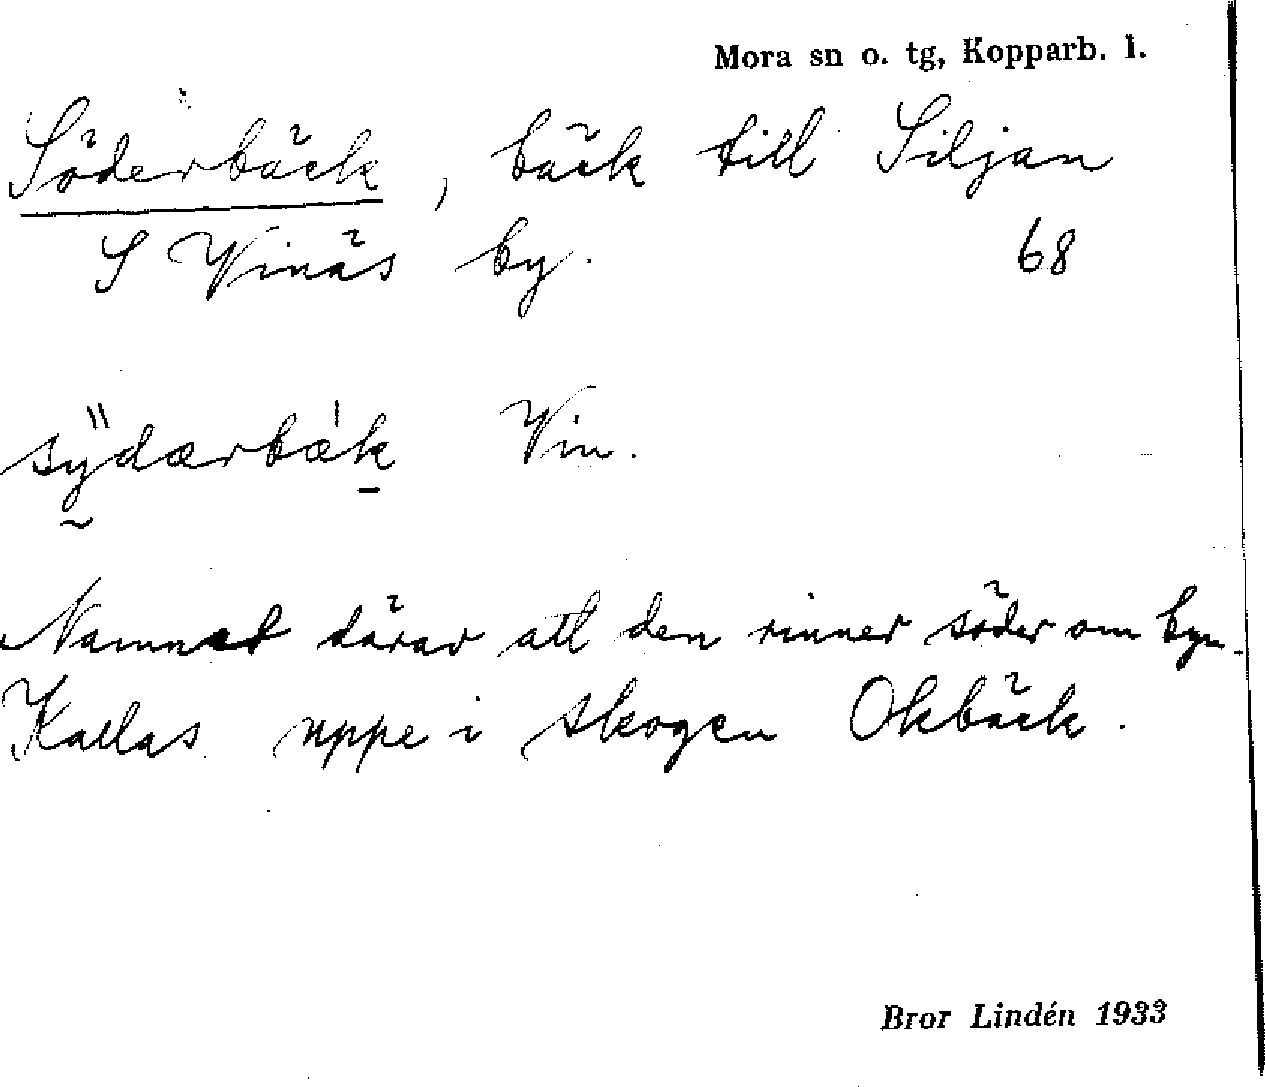 Mora sn o. tg, Kopparb. l.
Söderbäck, bäck till Siljan
S Vinäs by. 68
sydærbæk Vin.
Namnet därav att den rinner söder om byn.
Kallas uppe i skogen Okbäck.
Bror Lindén 1933